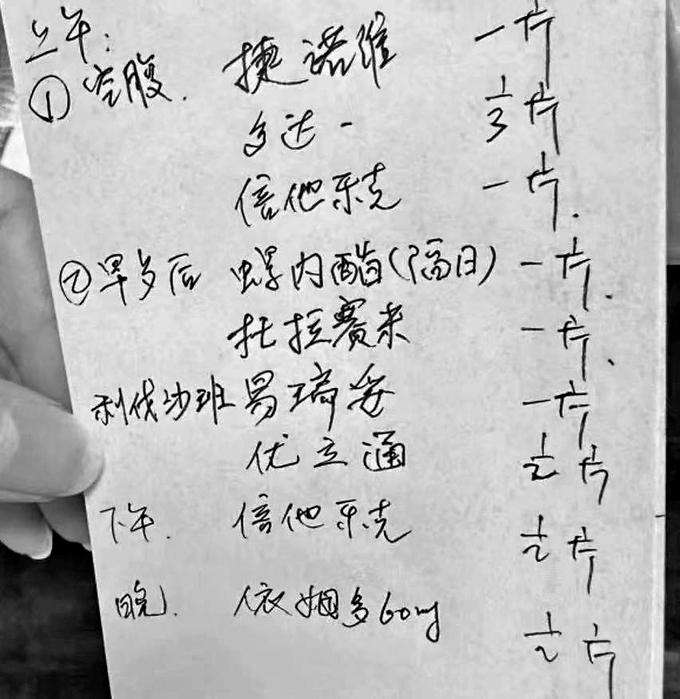 上午:
①空腹. 捷诺维 一片
多达一 1/3片
倍他乐克 一片.
②早多后 螺内酯(隔日) 一片.
托拉赛米 一片.
利伐沙班 易瑞妥 一片
优立通 1/2片
下午. 倍他乐克 1/2片
晚. 依姆多60mg 1/2片